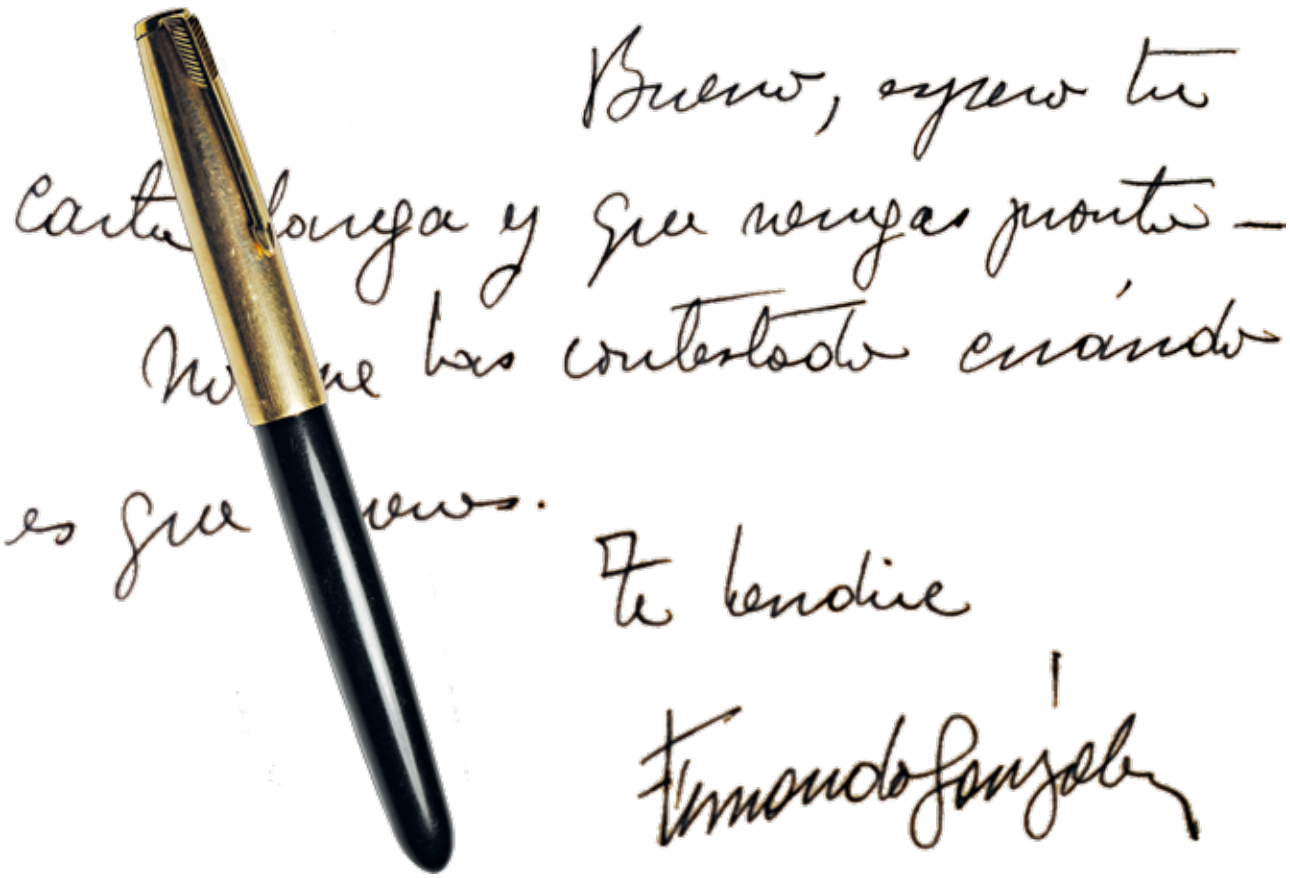 Bueno, espero tu
carta larga y que vengas pronto —
No me has contestado cuándo
es que vienes.
Te bendice
Fernando González